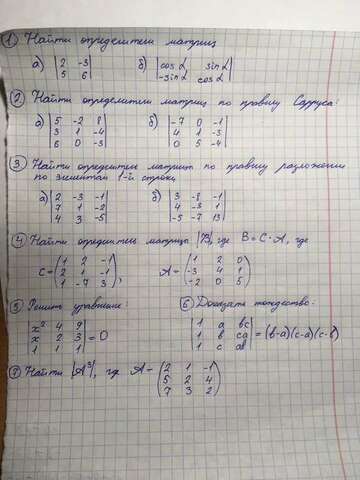 ① Найти определители матриц
а) |2 -3| б) |cos α sin α|
|5 6| |-sin α cos α|
② Найти определители матриц по правилу Сарруса:
а) |5 -2 8| б) |-7 0 -1|
|3 1 -4| |4 1 -3|
|6 0 -3| |0 5 -4|
③ Найти определители матриц по правилу разложения
по элементам 1-й строки
а) |2 -3 -1| б) |3 -8 -1|
|7 1 -2| |4 -3 1|
|4 3 -5| |-5 -7 13|
④ Найти определитель матрицы |B|, где B=C·A, где
C=(1 2 -1), A=(1 2 0)
(2 1 -1) (-3 4 1)
(1 -7 3) (-2 0 5)
⑤ Решить уравнение: ⑥ Доказать тождество:
|x² 4 9| |1 a bc|
|x 2 3|=0 |1 b ca|=(b-a)(c-a)(c-b)
|1 1 1| |1 c ab|
⑦ Найти |A³|, где A=(2 1 -1)
(5 2 4)
(7 3 2)